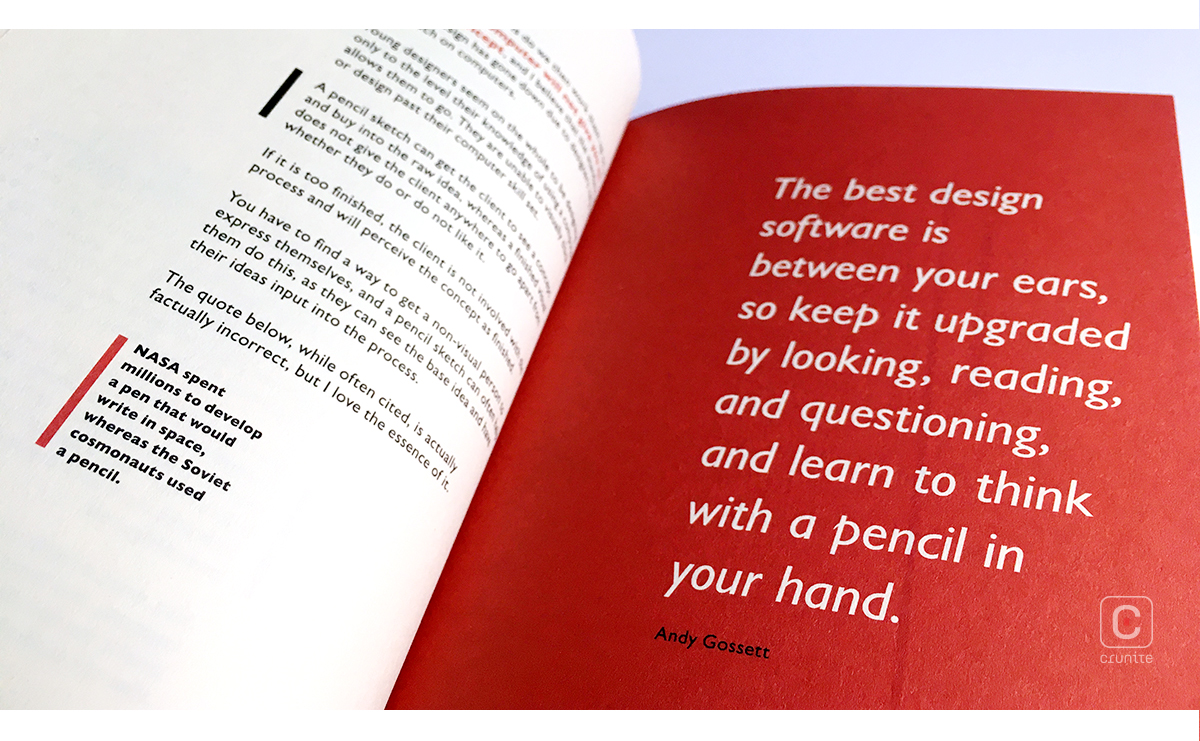 computer will not give you
cept, and I believe that
sign has gone down due to the
ch on computers.
oung designers seem on the whole to be
only to the level their knowledge of
allows them to go. They are unable to
or design past their computer skill set.
A pencil sketch can get the client to see a concept
and buy into the raw idea, whereas a finished visual
does not give the client anywhere to go apart from
whether they do or do not like it.
If it is too finished, the client is not involved with the
process and will perceive the concept as finished.
You have to find a way to get a non-visual person to
express themselves, and a pencil sketch can often help
them do this, as they can see the base idea and have
their ideas input into the process.
The quote below, while often cited, is actually
factually incorrect, but I love the essence of it.
NASA spent
millions to develop
a pen that would
write in space,
whereas the Soviet
cosmonauts used
a pencil.
The best design
software is
between your ears,
so keep it upgraded
by looking, reading,
and questioning,
and learn to think
with a pencil in
your hand.
Andy Gossett
C
crunite